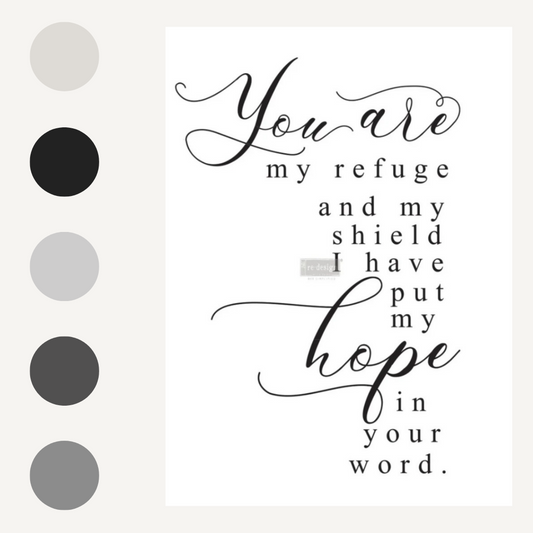 You are
my refuge
and my
shield
I have
put
my
hope
in
your
word.